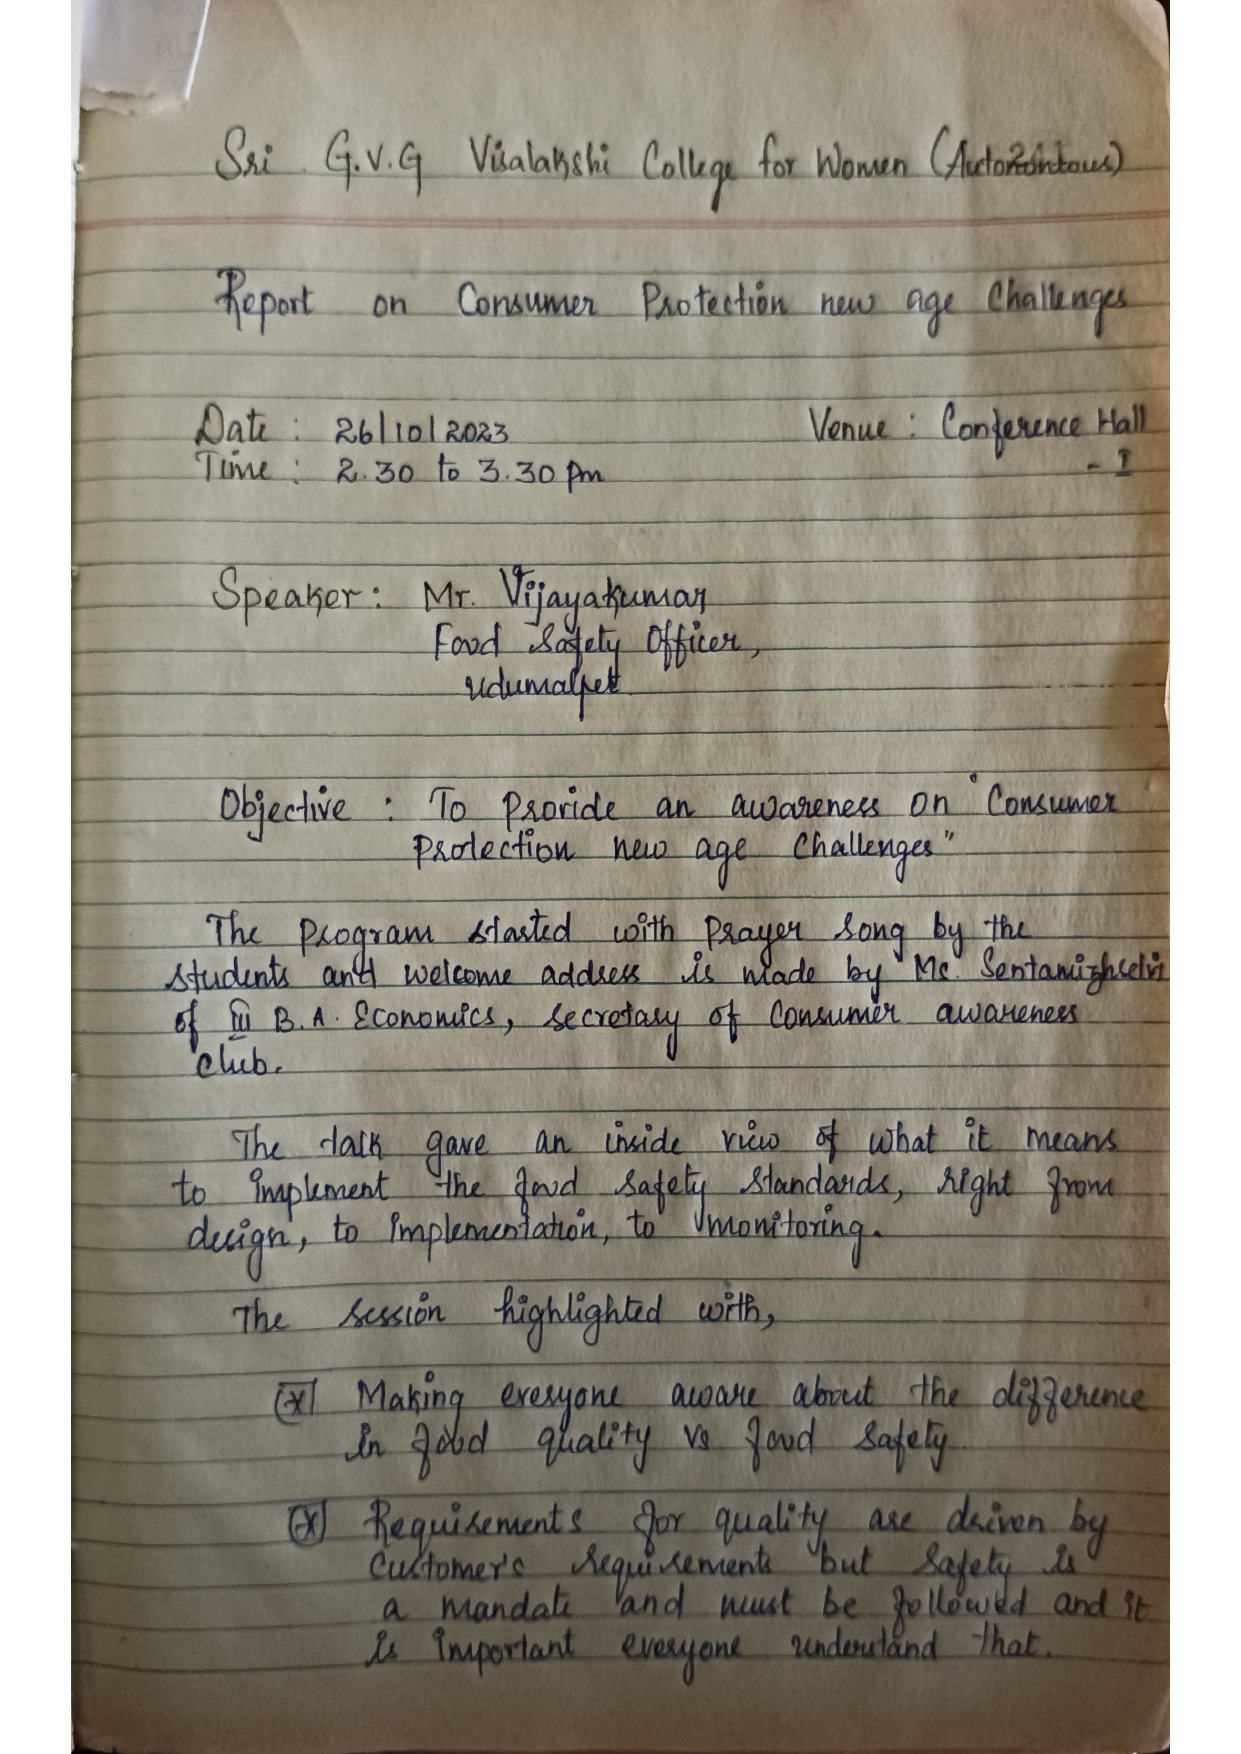 Sri G.V.G Visalakshi College for Women (Autonomous)
Report on Consumer Protection new age Challenges
Date : 26/10/2023 Venue : Conference Hall
Time : 2.30 to 3.30 pm - I
Speaker : Mr. Vijayakumar
Food Safety Officer,
Udumalpet
Objective : To Provide an awareness on "Consumer
Protection new age Challenges"
The Program started with Prayer Song by the
students and welcome address is made by Ms. Sentamizhselvi
of III B.A. Economics, Secretary of Consumer awareness
club.
The talk gave an inside view of what it means
to implement the food Safety Standards, right from
design, to implementation, to monitoring.
The session highlighted with,
(x) Making everyone aware about the difference
in food quality vs food Safety.
(x) Requirements for quality are driven by
Customer's requirements but Safety is
a mandate and must be followed and it
is important everyone understand that.